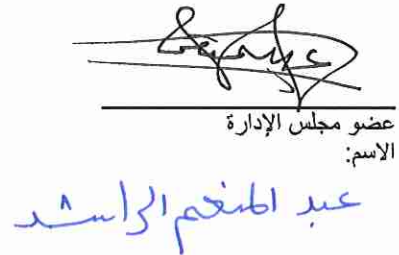 عضو مجلس الإدارة
الاسم:
عبد المنعم الراشد